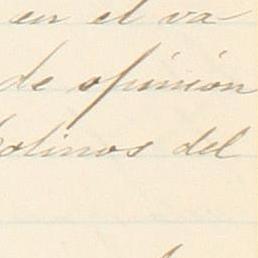 en el va
de opinión
olinos del